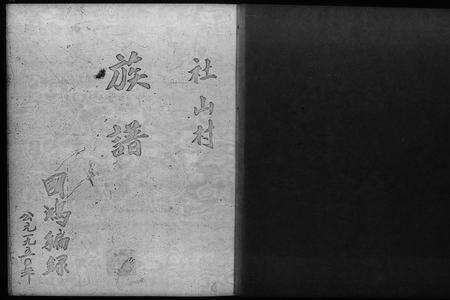 社山村
族譜
鴻編録
公元一九五〇年